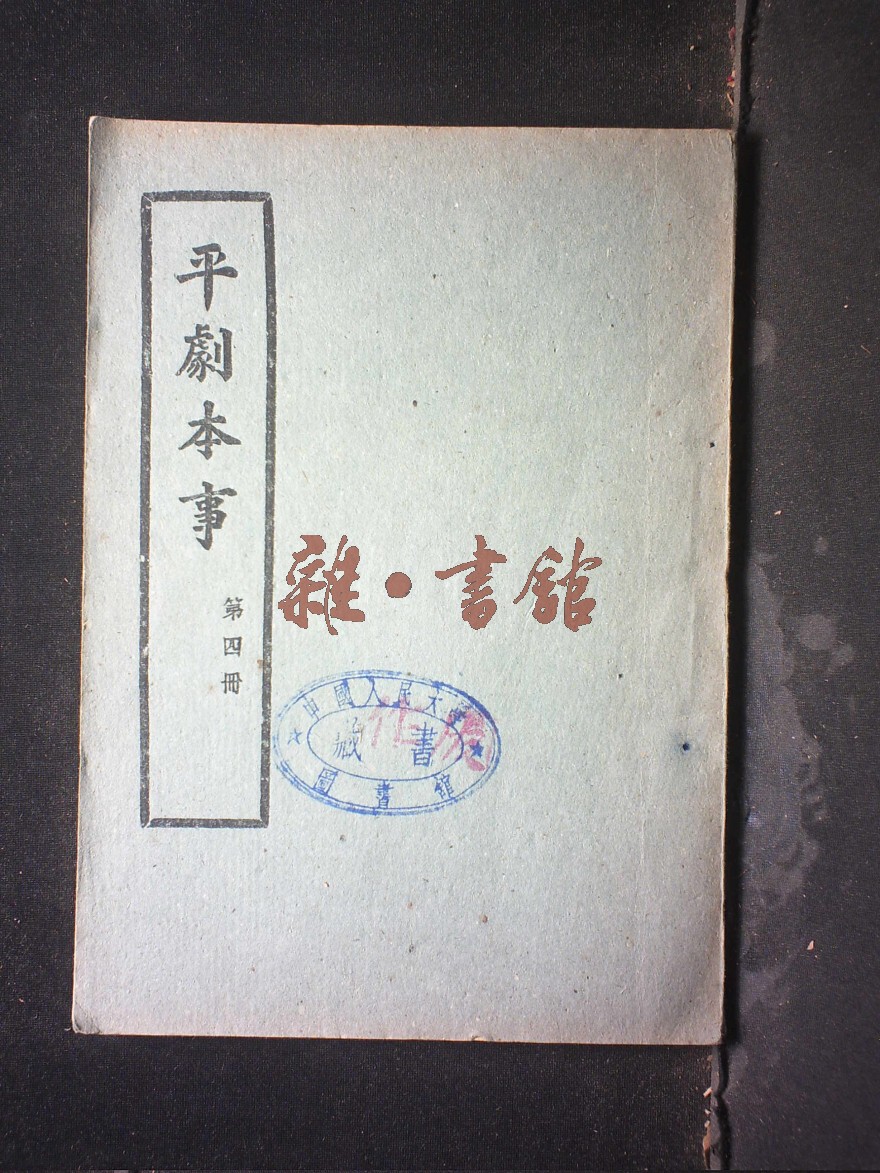 平劇本事
第四冊
雜·書館
中國人民大學
藏書
圖書館
作廢